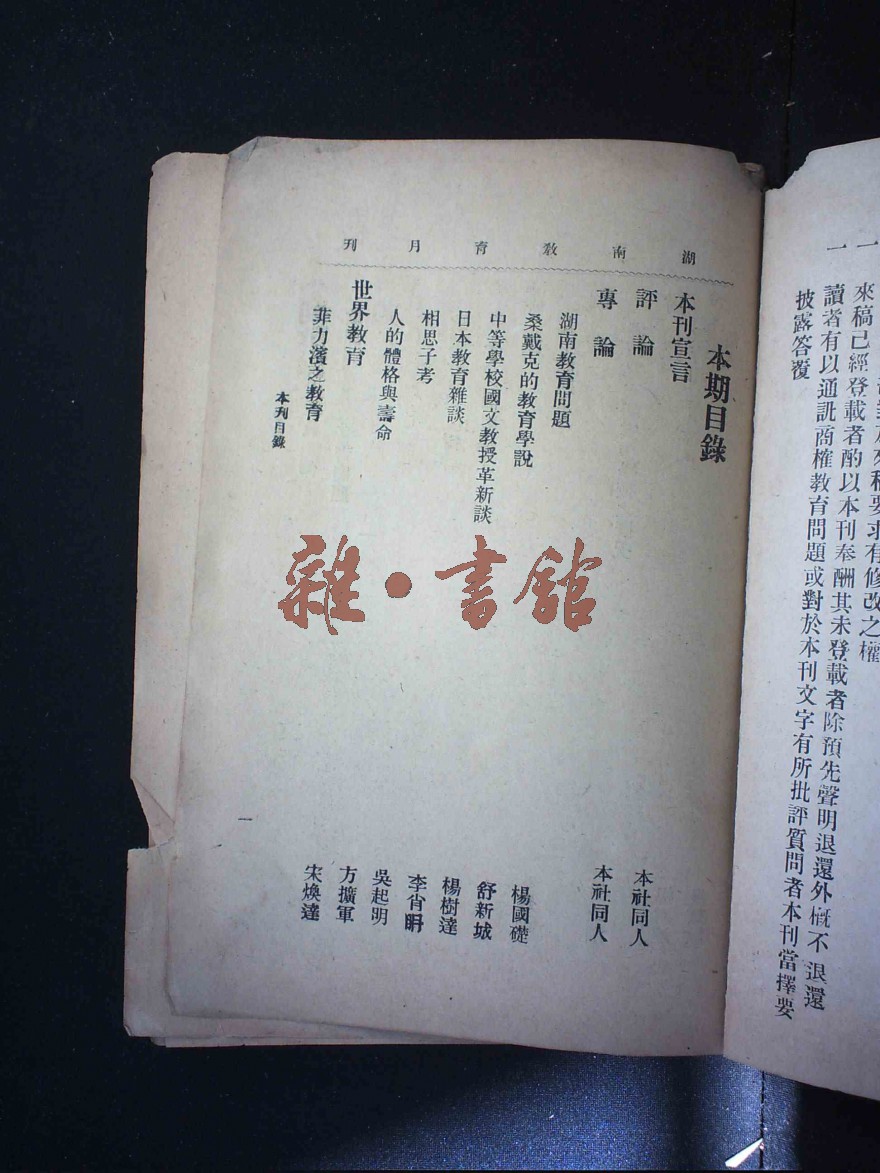 一
來稿已經登載者酌以本刊奉酬其未登載者除預先聲明退還外概不退還
一
讀者有以通訊商榷教育問題或對於本刊文字有所批評質問者本刊當擇要
披露答覆
湖南教育月刊
本期目錄
本刊宣言
評論 本社同人
專論 本社同人
湖南教育問題 楊國礎
桑戴克的教育學說 舒新城
中等學校國文教授革新談 楊樹達
日本教育雜談 李肖聃
相思子考 吳起明
人的體格與壽命 方擴軍
世界教育
菲力濱之教育 宋煥達
本刊目錄
一
雜·書館